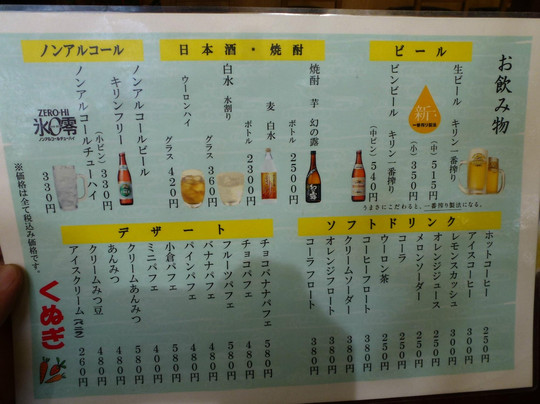 お飲み物
ビール
生ビール キリン一番搾り
(中) 515円
(小) 350円
ビンビール キリン一番搾り
(中ビン) 540円
うまさにこだわると、一番搾り製法になる。
日本酒・焼酎
焼酎 芋 幻の露
ボトル 2500円
麦 白水
ボトル 2300円
白水 水割り
グラス 360円
ウーロンハイ
グラス 420円
ノンアルコール
ノンアルコールビール
キリンフリー
(小ビン) 330円
ZERO-HI
氷零
ノンアルコールチューハイ
ノンアルコールチューハイ
330円
ソフトドリンク
ホットコーヒー 250円
アイスコーヒー 250円
レモンスカッシュ 300円
オレンジジュース 250円
メロンソーダー 300円
コーラ 250円
ウーロン茶 250円
コーヒーフロート 380円
クリームソーダー 380円
オレンジフロート 380円
コーラフロート 380円
デザート
チョコバナナパフェ 580円
チョコパフェ 480円
フルーツパフェ 580円
バナナパフェ 480円
パインパフェ 480円
小倉パフェ 580円
ミニパフェ 400円
クリームあんみつ 580円
あんみつ 480円
クリームみつ豆 480円
アイスクリーム 260円
※価格は全て税込み価格です。
くぬぎ